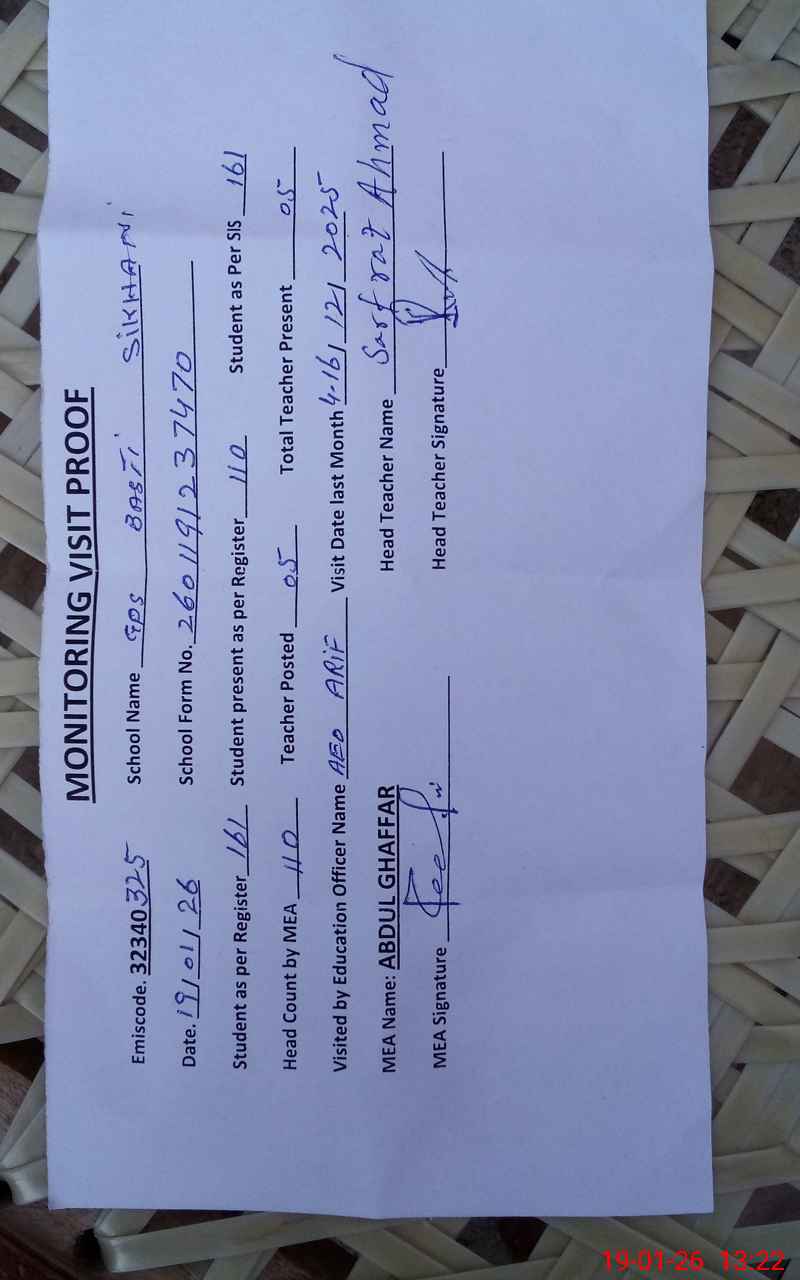 MONITORING VISIT PROOF
Emiscode. 32340325 School Name GPS BASTI SIKHANI
Date. 19/01/26 School Form No. 260119123 7470
Student as per Register 161 Student present as per Register 110 Student as Per SIS 161
Head Count by MEA 110 Teacher Posted 05 Total Teacher Present 05
Visited by Education Officer Name AEO ARIF Visit Date last Month 4-16/12/2025
MEA Name: ABDUL GHAFFAR Head Teacher Name Sarfraz Ahmad
MEA Signature Head Teacher Signature
19-01-26 13:22